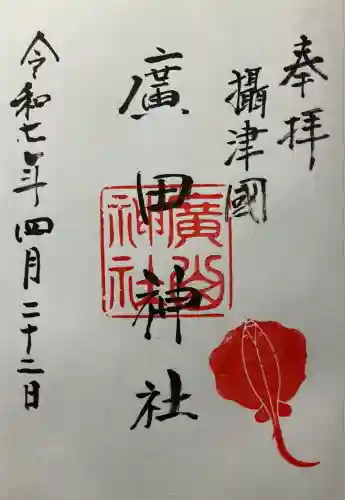 奉拝
攝津國
廣田神社
廣田神社
令和七年四月二十二日